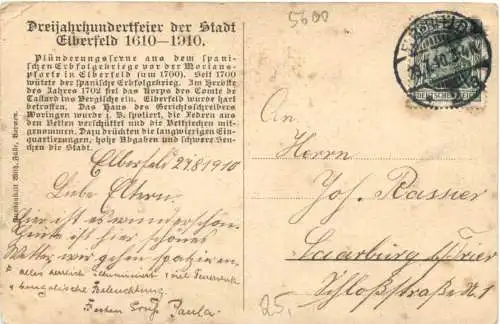 5600
Dreijahrhundertfeier der Stadt
Elberfeld 1610-1910.
Plünderungsscene aus dem spani-
schen Erbfolgekriege vor der Morians-
pforte in Elberfeld (um 1700). Seit 1700
wütete der spanische Erbfolgekrieg. Im Herbste
des Jahres 1702 fiel das Korps des Comte de
Tallard ins Bergische ein. Elberfeld wurde hart
betroffen. Das Haus des Gerichtsschreibers
Woringen wurde z. B. spoliert, die Federn aus
den Betten verschüttet und die Bettziechen mit-
genommen. Dazu drückten die langwierigen Ein-
quartierungen, hohe Abgaben und schwere Seu-
chen die Stadt.
Elberfeld 27 8 1910
Liebe Eltern.
Hier ist es wunderschön.
Heute ist hier schönes
Wetter, wir gehen spazieren.
alles herrlich illuminiert, viel Feuerwerk
bengalische Beleuchtung.
Besten Gruß Paula.
DEUTSCHES REICH
An
Herrn
Joh. Rasner
Saarburg b/Trier
Schloßstraße No 1
25,